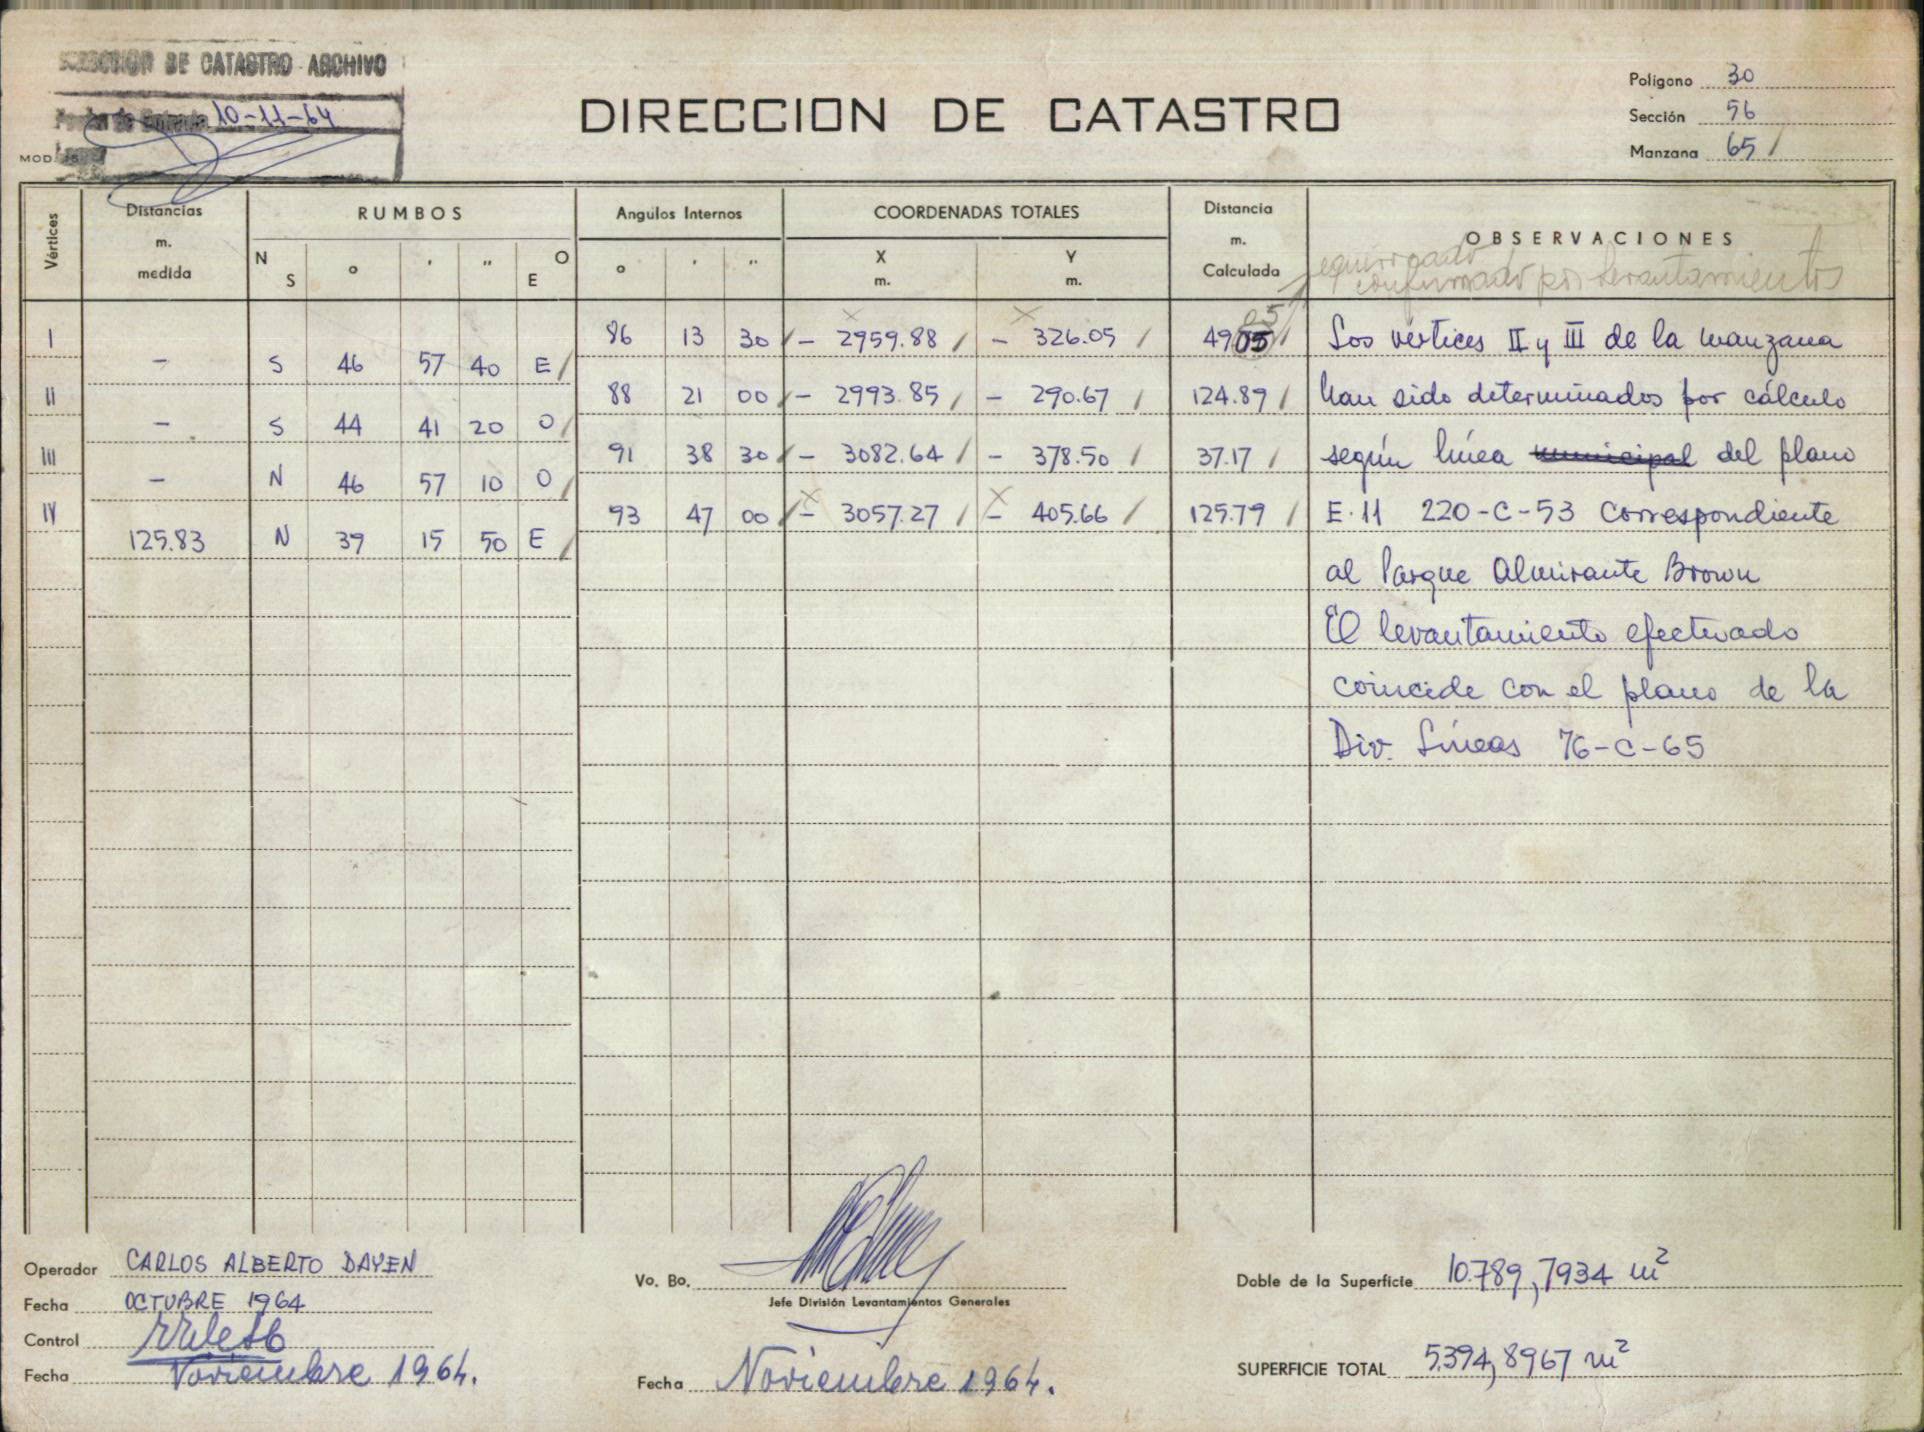 DIRECCION DE CATASTRO ARCHIVO
Fecha de Entrada 10-11-64
MOD.
DIRECCION DE CATASTRO
Polígono 30
Sección 56
Manzana 65 /
Vértices
Distancias m. medida
RUMBOS
N S ° ' " O E
Angulos Internos
° ' "
COORDENADAS TOTALES
X m. Y m.
Distancia m. Calculada
OBSERVACIONES
confirmado por levantamientos
I 86 13 30 / - 2959.88 / - 326.05 / 49.05 / Los vértices II y III de la manzana
- S 46 57 40 E /
II 88 21 00 / - 2993.85 / - 290.67 / 124.89 / han sido determinados por cálculo
- S 44 41 20 O /
III 91 38 30 / - 3082.64 / - 378.50 / 37.17 / según línea municipal del plano
- N 46 57 10 O /
IV 93 47 00 / - 3057.27 / - 405.66 / 125.79 / E·11 220-C-53 correspondiente
125.83 N 39 15 50 E /
al Parque Almirante Brown
El levantamiento efectuado
coincide con el plano de la
Div. Líneas 76-C-65
Operador CARLOS ALBERTO DAYEN
Fecha OCTUBRE 1964
Control
Fecha Noviembre 1964.
Vo. Bo.
Jefe División Levantamientos Generales
Fecha Noviembre 1964.
Doble de la Superficie 10.789,7934 m²
SUPERFICIE TOTAL 5.394,8967 m²